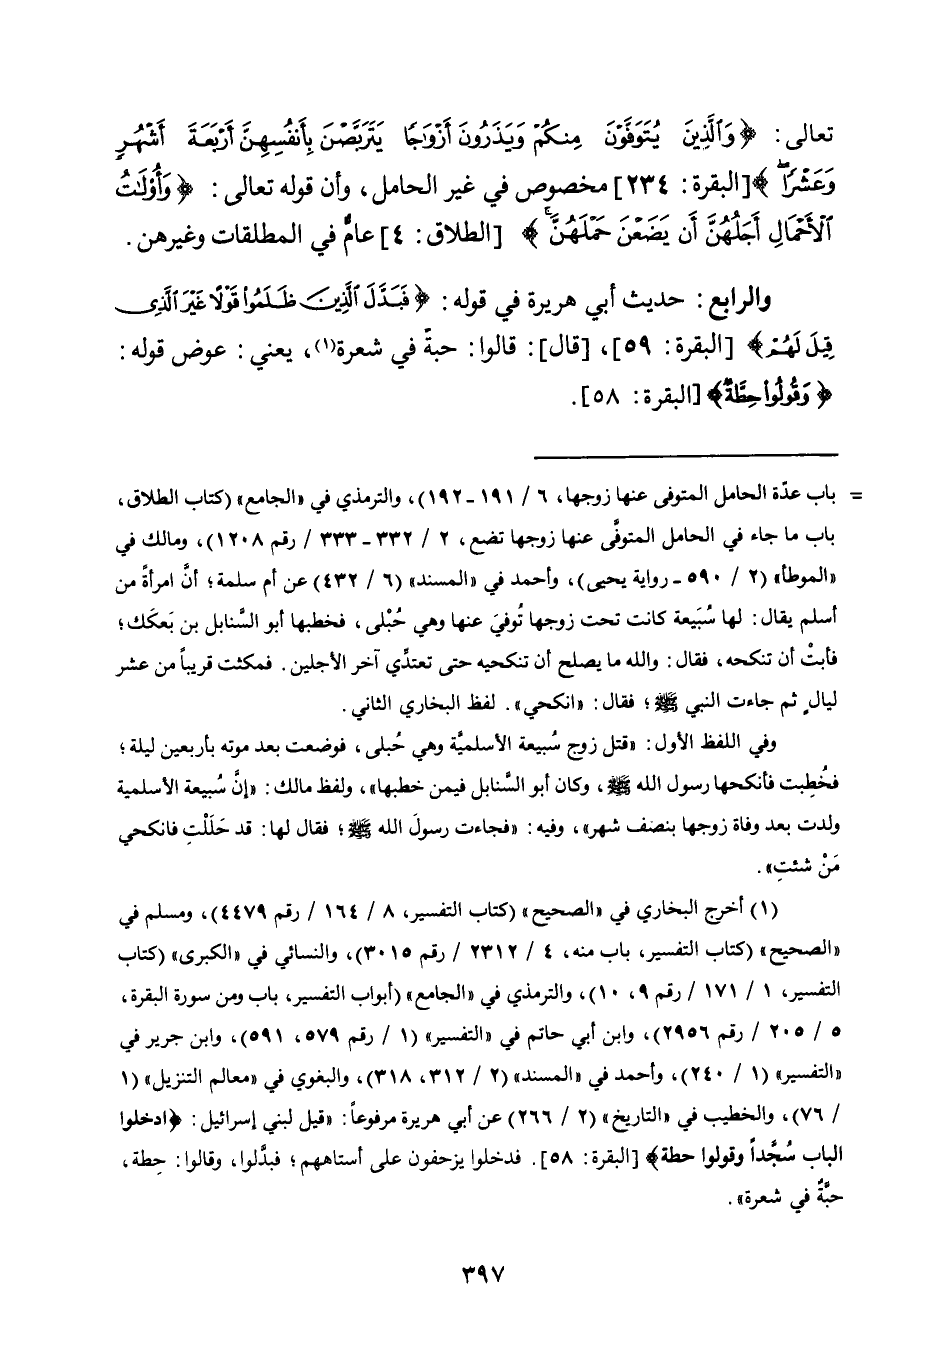 تعالى: ﴿وَٱلَّذِينَ يُتَوَفَّوْنَ مِنكُمْ وَيَذَرُونَ أَزْوَٰجًا يَتَرَبَّصْنَ بِأَنفُسِهِنَّ أَرْبَعَةَ أَشْهُرٍ
وَعَشْرًا ۖ﴾ [البقرة: ٢٣٤] مخصوص في غير الحامل، وأن قوله تعالى: ﴿وَأُوْلَٰتُ
ٱلْأَحْمَالِ أَجَلُهُنَّ أَن يَضَعْنَ حَمْلَهُنَّ ۚ﴾ [الطلاق: ٤] عامٌّ في المطلقات وغيرهن.
والرابع: حديث أبي هريرة في قوله: ﴿فَبَدَّلَ ٱلَّذِينَ ظَلَمُوا۟ قَوْلًا غَيْرَ ٱلَّذِى
قِيلَ لَهُمْ﴾ [البقرة: ٥٩]، [قال]: قالوا: حبةً في شعرة(١)، يعني: عوض قوله:
﴿وَقُولُوا۟ حِطَّةٌ﴾ [البقرة: ٥٨].
= باب عدّة الحامل المتوفى عنها زوجها، ٦ / ١٩١ ـ ١٩٢)، والترمذي في «الجامع» (كتاب الطلاق،
باب ما جاء في الحامل المتوفَّى عنها زوجها تضع، ٢ / ٣٣٢ ـ ٣٣٣ / رقم ١٢٠٨)، ومالك في
«الموطأ» (٢ / ٥٩٠ ـ رواية يحيى)، وأحمد في «المسند» (٦ / ٤٣٢) عن أم سلمة؛ أنَّ امرأةً من
أسلم يقال: لها سُبَيعة كانت تحت زوجها تُوفيَ عنها وهي حُبْلى، فخطبها أبو السَّنابل بن بَعكَك؛
فأبتْ أن تنكحه، فقال: والله ما يصلح أن تنكحيه حتى تعتدِّي آخر الأجلين. فمكثت قريباً من عشر
ليالٍ ثم جاءت النبي ﷺ؛ فقال: «انكحي». لفظ البخاري الثاني.
وفي اللفظ الأول: «قتل زوج سُبيعة الأسلميَّة وهي حُبلى، فوضعت بعد موته بأربعين ليلة؛
فخُطِبت فأنكحها رسول الله ﷺ، وكان أبو السَّنابل فيمن خطبها»، ولفظ مالك: «إنَّ سُبيعة الأسلمية
ولدت بعد وفاة زوجها بنصف شهر»، وفيه: «فجاءت رسولَ الله ﷺ؛ فقال لها: قد حَلَلْتِ فانكحي
مَنْ شئتِ».
(١) أخرج البخاري في «الصحيح» (كتاب التفسير، ٨ / ١٦٤ / رقم ٤٤٧٩)، ومسلم في
«الصحيح» (كتاب التفسير، باب منه، ٤ / ٢٣١٢ / رقم ٣٠١٥)، والنسائي في «الكبرى» (كتاب
التفسير، ١ / ١٧١ / رقم ٩، ١٠)، والترمذي في «الجامع» (أبواب التفسير، باب ومن سورة البقرة،
٥ / ٢٠٥ / رقم ٢٩٥٦)، وابن أبي حاتم في «التفسير» (١ / رقم ٥٧٩، ٥٩١)، وابن جرير في
«التفسير» (١ / ٢٤٠)، وأحمد في «المسند» (٢ / ٣١٢، ٣١٨)، والبغوي في «معالم التنزيل» (١
/ ٧٦)، والخطيب في «التاريخ» (٢ / ٢٦٦) عن أبي هريرة مرفوعاً: «قيل لبني إسرائيل: ﴿ادخلوا
الباب سُجَّداً وقولوا حطة﴾ [البقرة: ٥٨]. فدخلوا يزحفون على أستاههم؛ فبدَّلوا، وقالوا: حِطة،
حبَّةٌ في شعرة».
٣٩٧